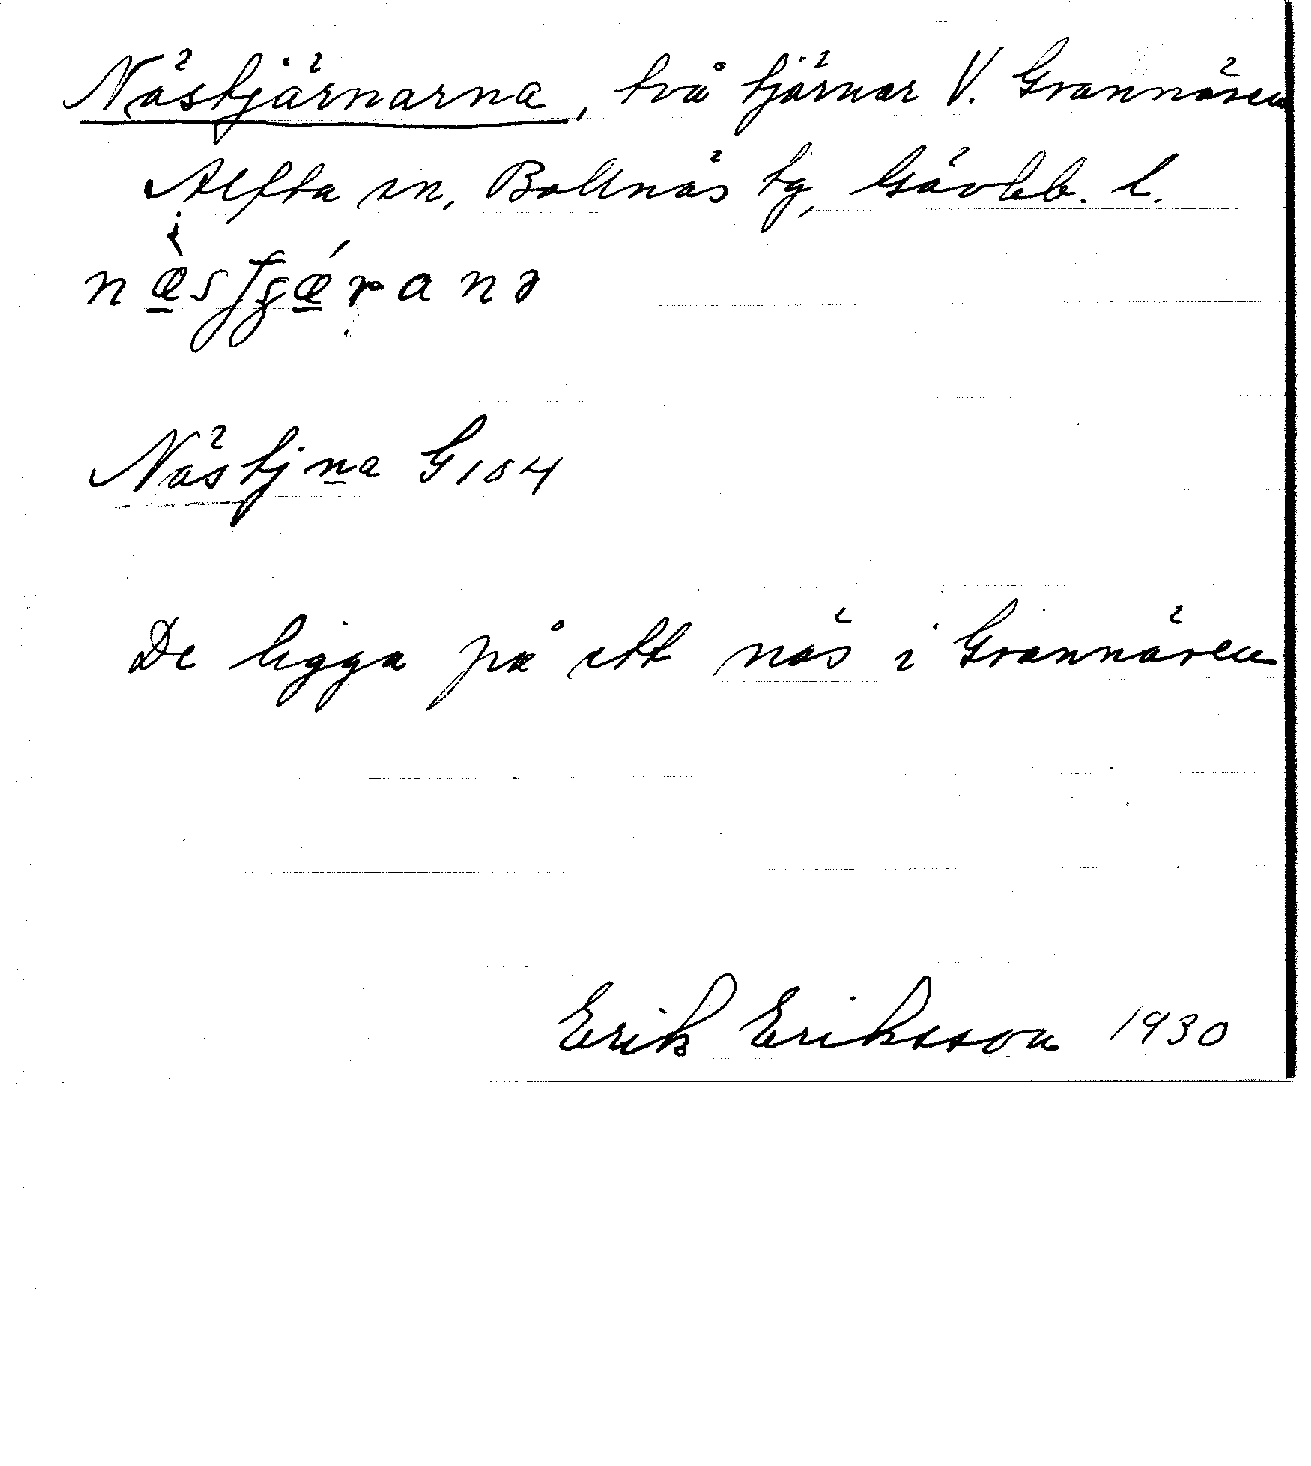 Nästjärnarna, två tjärnar V. Grannären
Alfta sn, Bollnäs tg, Gävleb. l.
Nästjna G104
De ligga på ett näs i Grannären
Erik Eriksson 1930